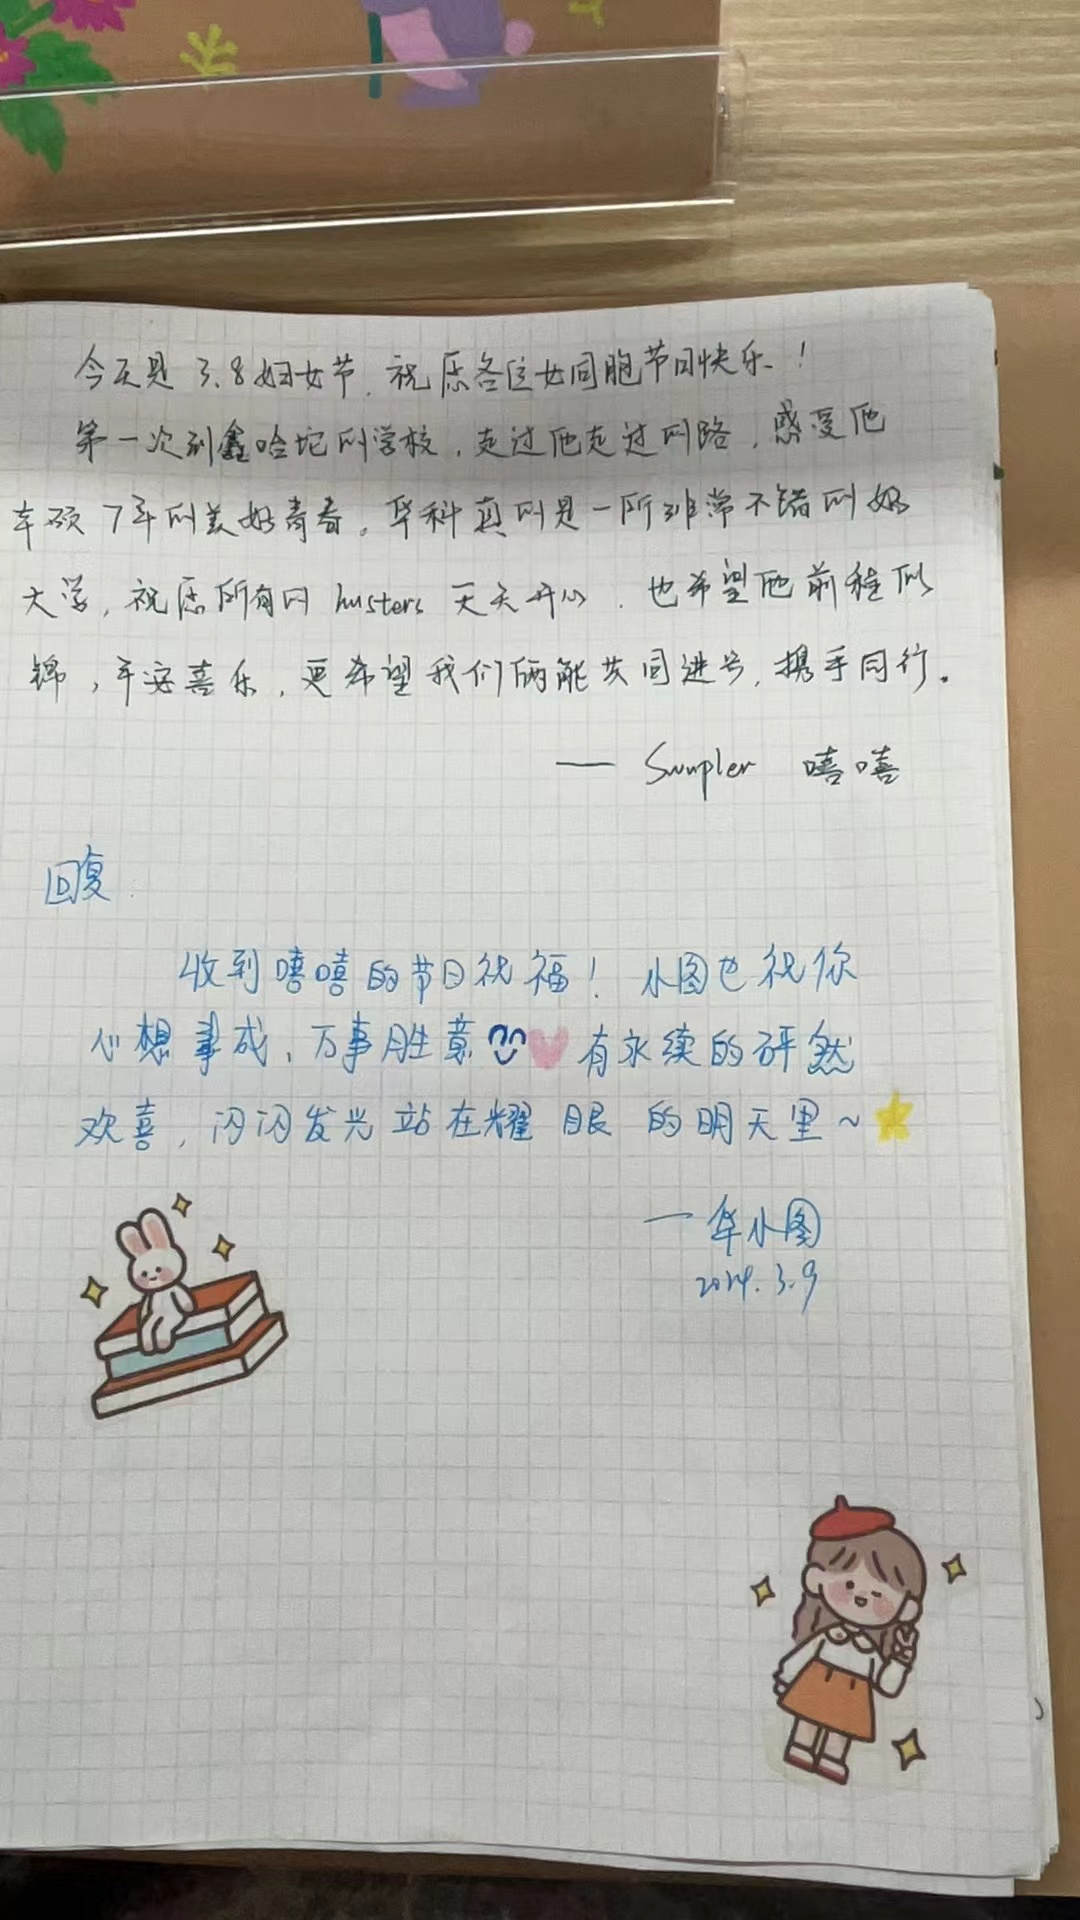 今天是 3.8妇女节,祝愿各位女同胞节日快乐!
第一次到鑫哈坨的学校,走过他走过的路,感受他
本硕7年的美好青春。华科真的是一所非常不错的好
大学,祝愿所有的 husters 天天开心,也希望他前程似
锦,平安喜乐,更希望我们俩能共同进步,携手同行。
—— 嘻嘻
回复:
收到嘻嘻的节日祝福!小图也祝你
心想事成,万事胜意 有永续的砰然
欢喜,闪闪发光站在耀眼的明天里~
—华小图
2024.3.9